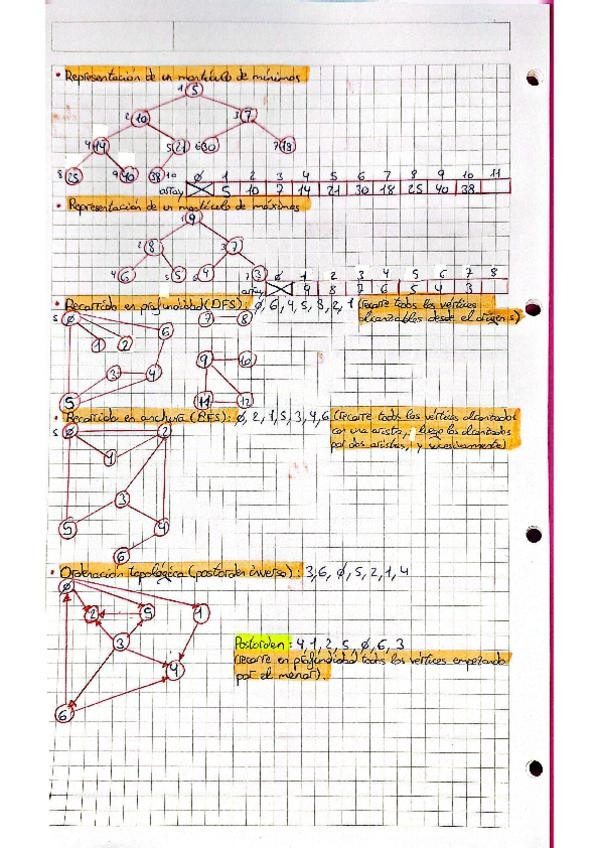 Representación de un montículo de mínimos
1 5
2 10 3 7
4 14 5 21 6 30 7 18
8 25 9 40 38 10
0 1 2 3 4 5 6 7 8 9 10 11
array 5 10 7 14 21 30 18 25 40 38
Representación de un montículo de máximos
1 9
2 8 3 7
4 6 5 5 6 4 7 3
0 1 2 3 4 5 6 7 8
array 9 8 7 6 5 4 3
Recorrido en profundidad (DFS): 0, 6, 4, 5, 3, 2, 1 (recorre todos los vértices
alcanzables desde el origen s)
s 0 6 7 8
1 2
3 4 9 10
5 11 12
Recorrido en anchura (BFS): 0, 2, 1, 5, 3, 4, 6 (recorre todos los vértices alcanzados
con una arista, luego los alcanzados
por dos aristas, y sucesivamente)
s 0 2
1
3
5 4
6
Ordenación topológica (postorden inverso): 3, 6, 0, 5, 2, 1, 4
0
2 5 1
3
4
6
Postorden: 4, 1, 2, 5, 0, 6, 3
(recorre en profundidad todos los vértices empezando
por el menor).